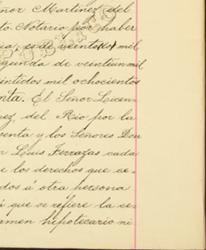 eñor Martinez del
to Notario por haber
ia, es de veintidos mil
egunda de veintiun mil
eintidos mil ochocientos
enta. El Señor Licen-
ez, del Rio por la
venta y los Señores Don
n Luis Terrazas cada
e los derechos que ce-
dos á otra persona
á que se refiere la ce-
amen hipotecario ni